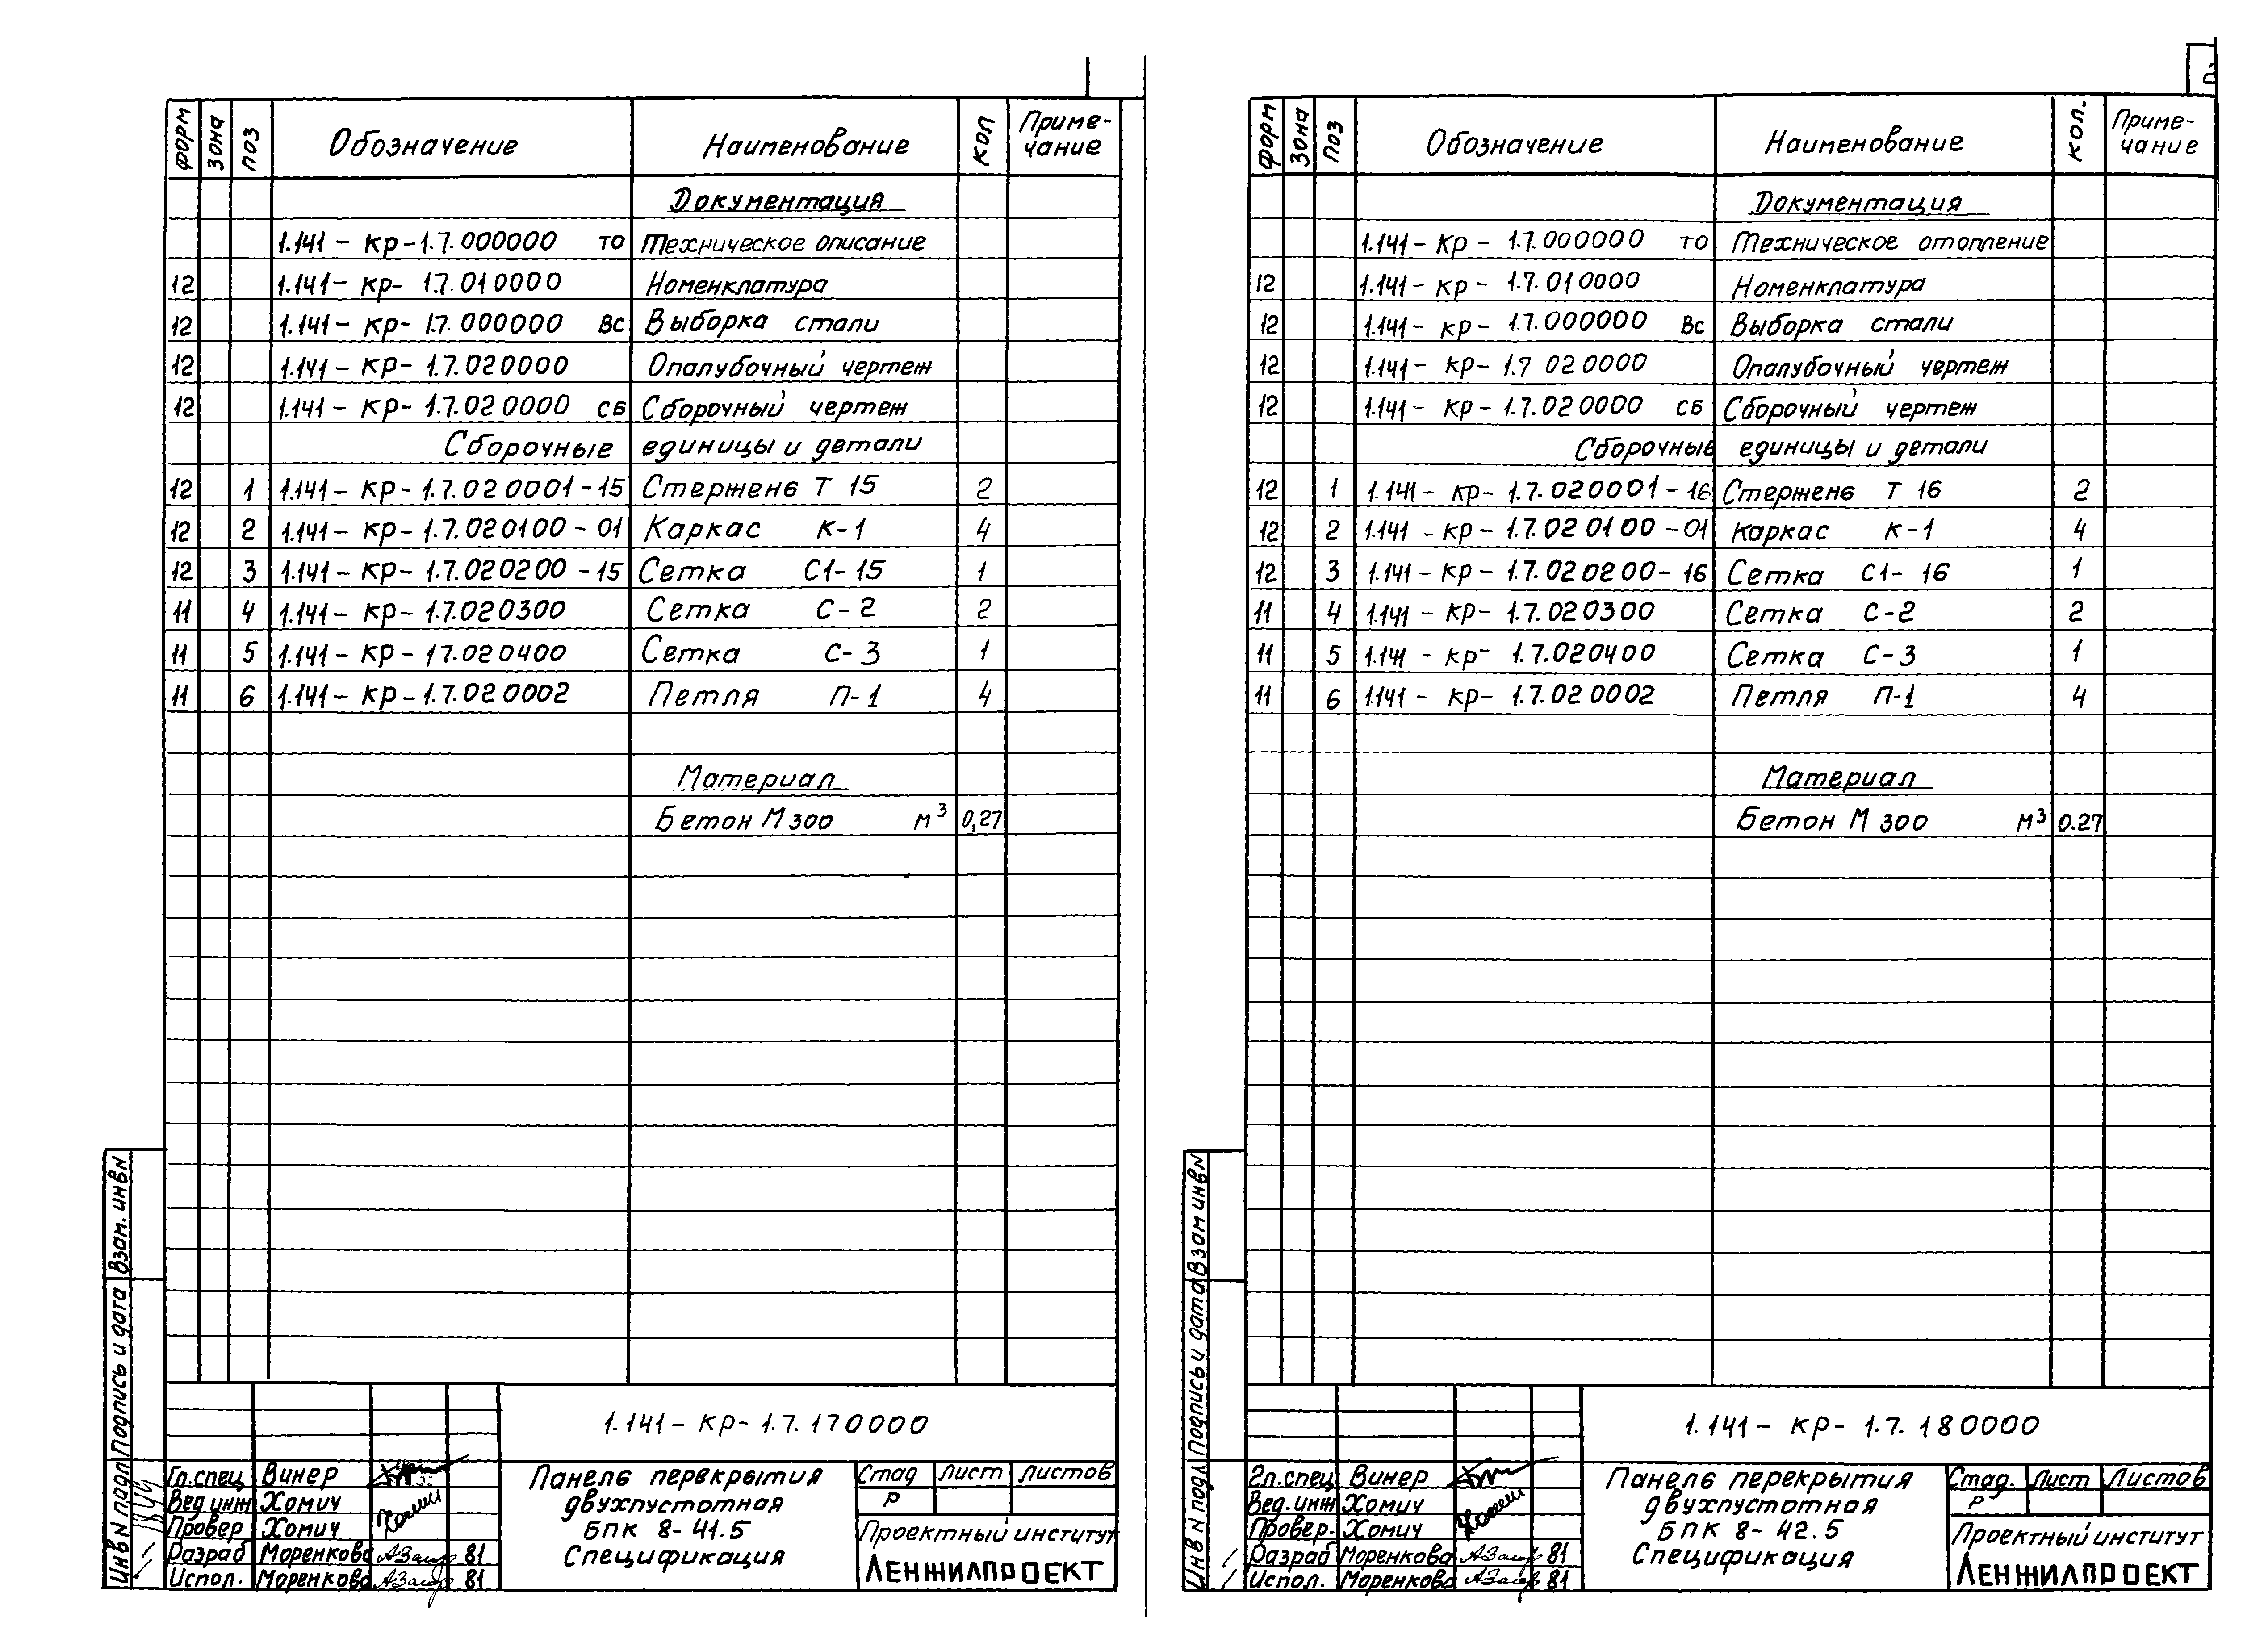 форм зона поз Обозначение Наименование кол Приме-чание
Документация
1.141-кр-1.7.000000 ТО Техническое описание
12 1.141-кр-1.7.010000 Номенклатура
12 1.141-кр-1.7.000000 ВС Выборка стали
12 1.141-кр-1.7.020000 Опалубочный чертеж
12 1.141-кр-1.7.020000 СБ Сборочный чертеж
Сборочные единицы и детали
12 1 1.141-кр-1.7.020001-15 Стержень Т 15 2
12 2 1.141-кр-1.7.020100-01 Каркас К-1 4
12 3 1.141-кр-1.7.020200-15 Сетка С1-15 1
11 4 1.141-кр-1.7.020300 Сетка С-2 2
11 5 1.141-кр-17.020400 Сетка С-3 1
11 6 1.141-кр-1.7.020002 Петля П-1 4
Материал
Бетон М 300 м³ 0,27
Взам. инв N
Подпись и дата
Инв N подл
1.141-кр-1.7.170000
Гл.спец Винер
Вед инж Хомич
Провер Хомич
Разраб Моренкова 81
Испол. Моренкова 81
Панель перекрытия
двухпустотная
БПК 8-41.5
Спецификация
Стад Лист Листов
Р
Проектный институт
ЛЕНЖИЛПРОЕКТ
2
форм зона поз Обозначение Наименование кол. Приме-чание
Документация
1.141-кр-1.7.000000 ТО Техническое отопление
12 1.141-кр-1.7.010000 Номенклатура
12 1.141-кр-1.7.000000 ВС Выборка стали
12 1.141-кр-1.7 020000 Опалубочный чертеж
12 1.141-кр-1.7.020000 СБ Сборочный чертеж
Сборочные единицы и детали
12 1 1.141-кр-1.7.020001-16 Стержень Т 16 2
12 2 1.141-кр-1.7.020100-01 Каркас К-1 4
12 3 1.141-кр-1.7.020200-16 Сетка С1-16 1
11 4 1.141-кр-1.7.020300 Сетка С-2 2
11 5 1.141-кр-1.7.020400 Сетка С-3 1
11 6 1.141-кр-1.7.020002 Петля П-1 4
Материал
Бетон М 300 м³ 0.27
Взам инв N
Подпись и дата
Инв N подл
1.141-кр-1.7.180000
Гл.спец Винер
Вед.инж Хомич
Провер. Хомич
Разраб Моренкова 81
Испол. Моренкова 81
Панель перекрытия
двухпустотная
БПК 8-42.5
Спецификация
Стад. Лист Листов
Р
Проектный институт
ЛЕНЖИЛПРОЕКТ